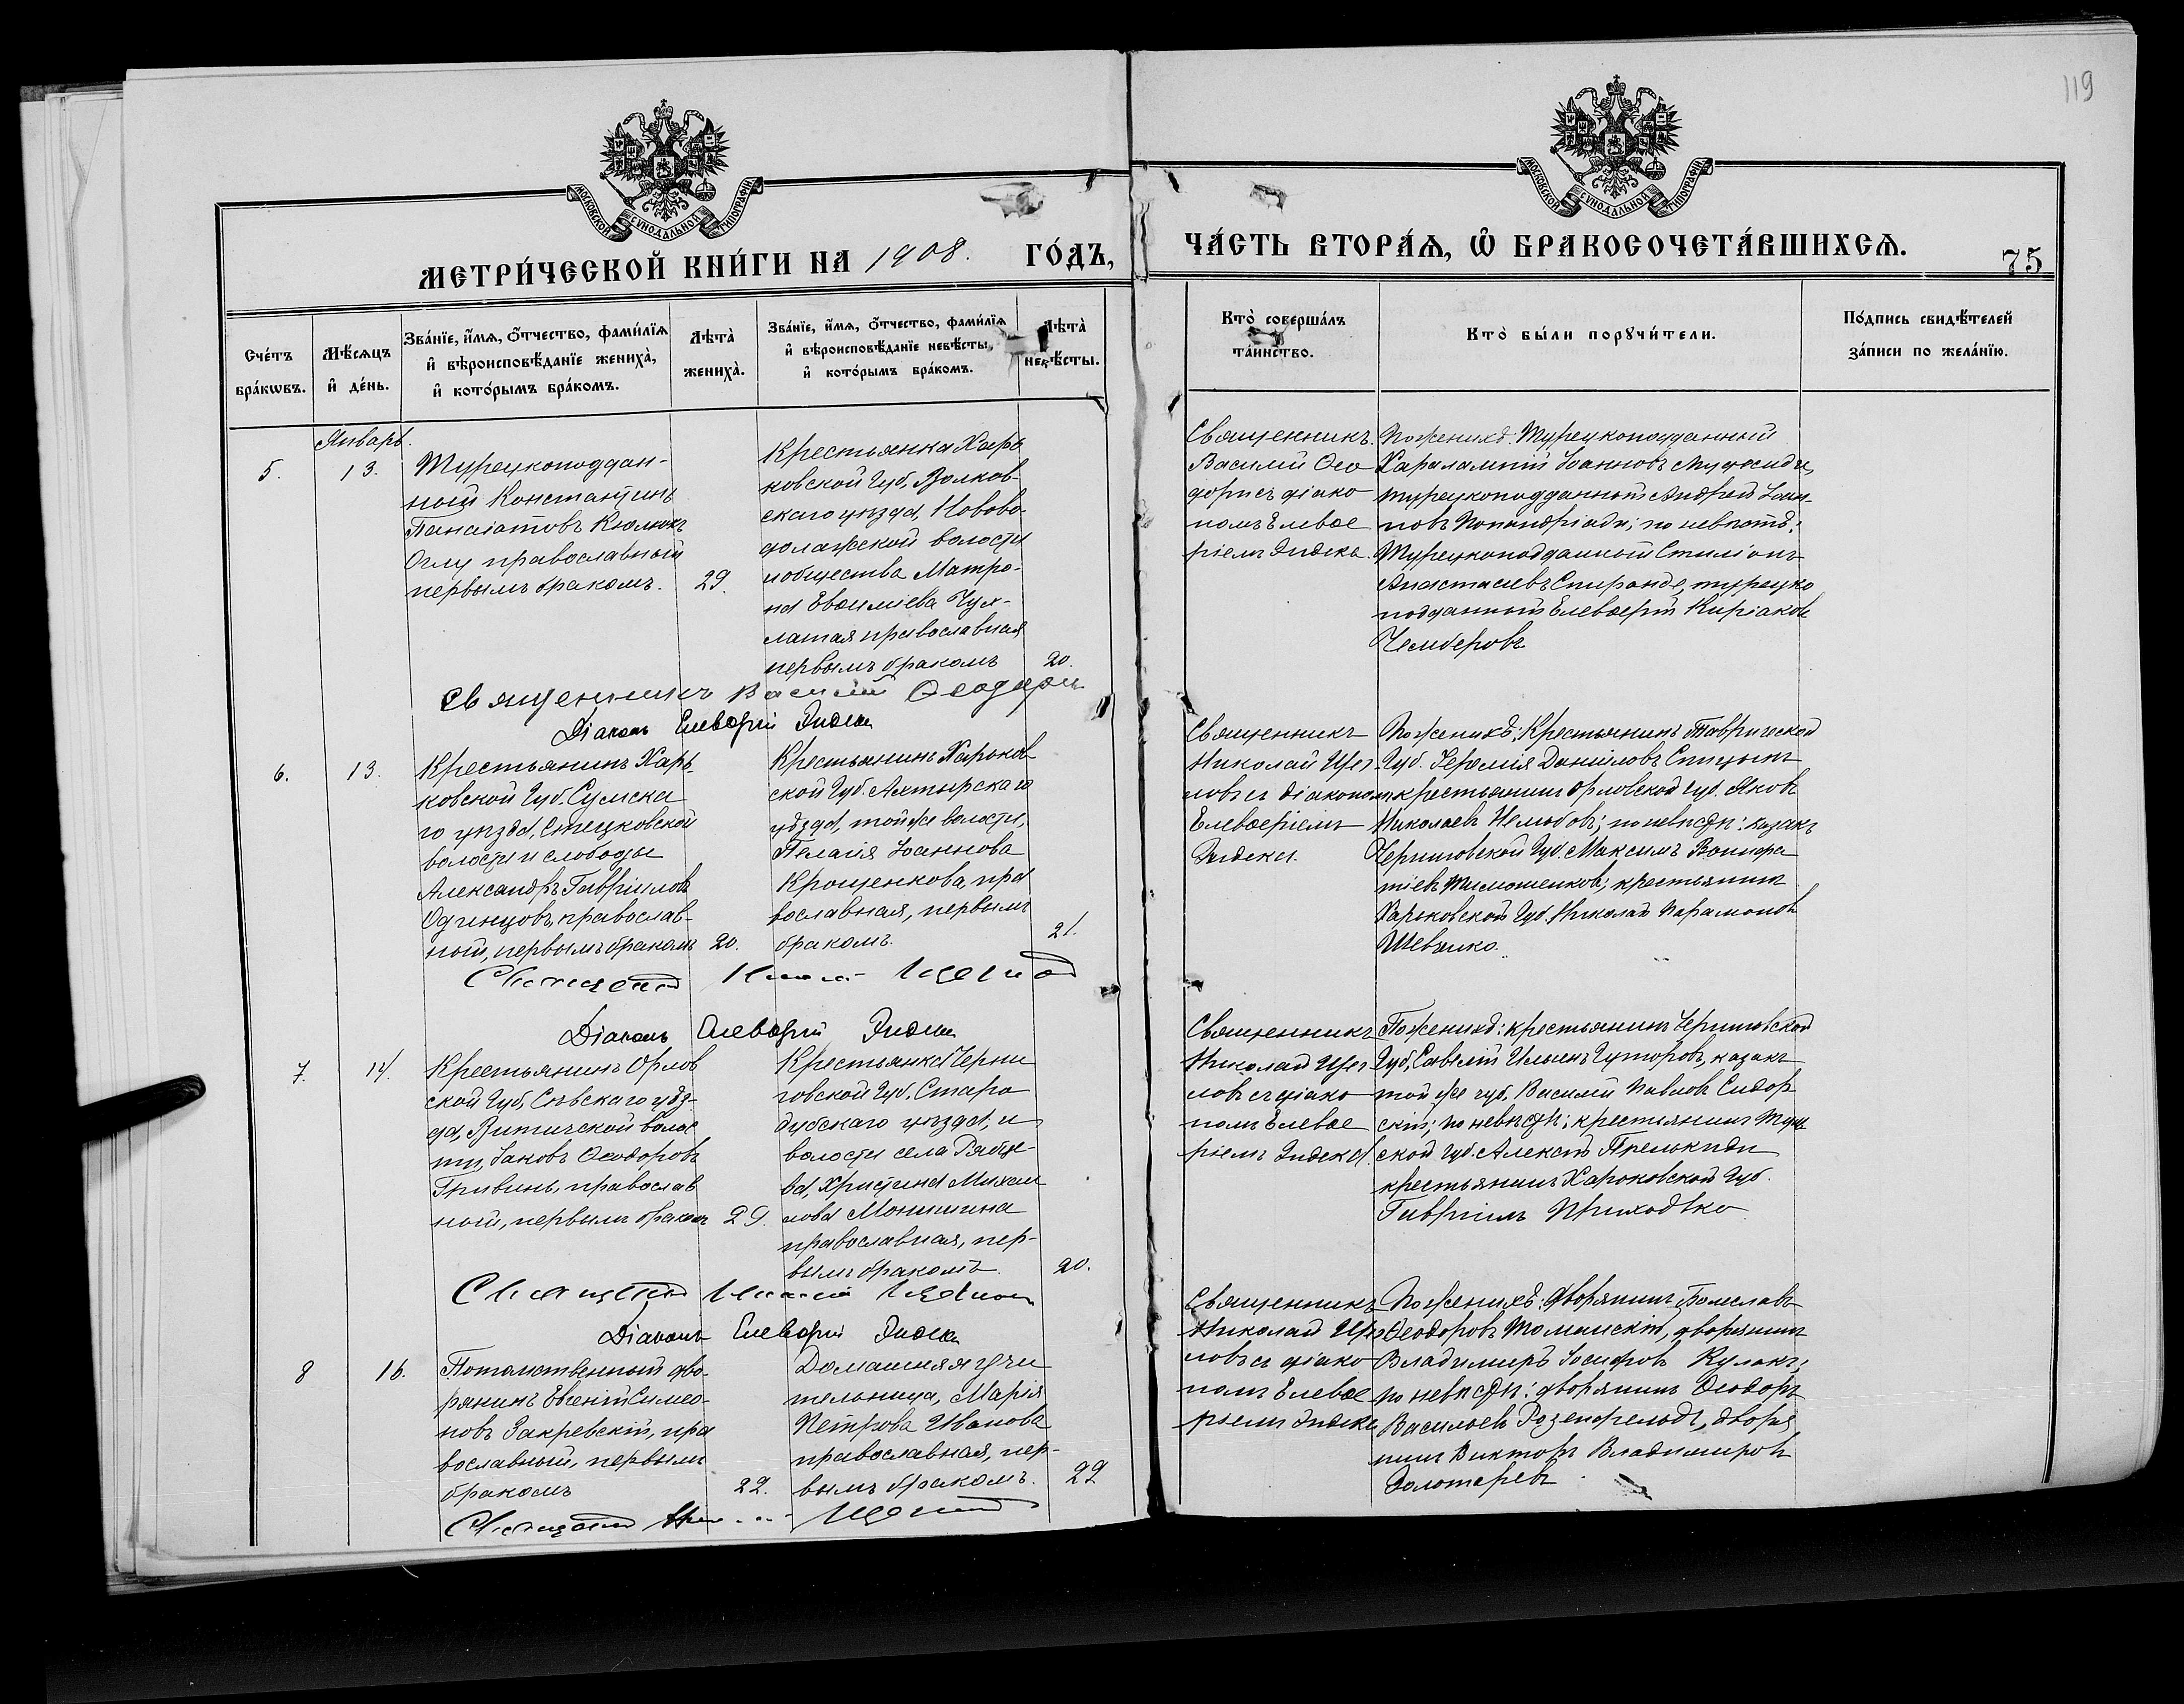 119
МОСКОВСКОЙ СѴНОДАЛЬНОЙ ТИПОГРАФІИ
МОСКОВСКОЙ СѴНОДАЛЬНОЙ ТИПОГРАФІИ
МЕТРИ́ЧЕСКОЙ КНИ́ГИ НА 1908. ГО́ДЪ,
ЧА́СТЬ ВТОРА́Ѧ, Ѽ БРАКОСОЧЕТА́ВШИХСѦ.
75
Сче́тъ
бра́кѡвъ.
Мѣ́сѧцъ
и҆ де́нь.
Зва́нїе, и҆́мѧ, ѻ҆́тчество, фами́лїѧ
и҆ вѣроисповѣ́данїе жениха̀,
и҆ кото́рымъ бра́комъ.
Лѣта̀
жениха̀.
Зва́нїе, и҆́мѧ, ѻ҆́тчество, фами́лїѧ
и҆ вѣроисповѣ́данїе невѣ́сты,
и҆ кото́рымъ бра́комъ.
Лѣта̀
невѣ́сты.
Кто̀ соверша́лъ
та́инство.
Кто̀ бы́ли порꙋчи́тели.
По́дпись свидѣ́телей
за́писи по жела́нїю.
Январь.
5.
13.
Турецкоподдан-
ный Константинъ
Панаіотовъ Кюлюкъ
Оглу православный
первымъ бракомъ.
29.
Крестьянка Харь
ковской Губ, Валков-
скаго уѣзда, Новово-
долажской волости
и общества Матро-
на Евѳиміева Чух-
латая православная
первымъ бракомъ
20.
Священникъ
Василій Ѳео
дори съ діако
номъ Елевѳе
ріемъ Эндека.
По женихѣ: Турецкоподданный
Харалампій Іоанновъ
турецкоподданный Андрей Іоан-
новъ Попандріади; по невѣстѣ:
Турецкоподданный Стиліонъ
Анастасіевъ Спиранде, турецко
подданный Елевѳерій Киріаков
Чемберовъ
Священникъ Василій Ѳеодори
Діаконъ Елевѳерій Эндека
6.
13.
Крестьянинъ Харь-
ковской Губ. Сумска
го уѣзда, Стецковской
волости и слободы
Александръ Гавріиловъ
Одинцовъ, православ-
ный, первымъ бракомъ
20.
Крестьянинъ Харьков
ской Губ. Ахтырскаго
уѣзда, той же волости,
Пелагія Іоаннова
Крощенкова, пра
вославная, первымъ
бракомъ.
21.
Священникъ
Николай Щег
ловъ съ діакономъ
Елевѳеріемъ
Эндека.
По женихѣ: Крестьянинъ Таврической
Губ. Іеремія Даніиловъ Спицынъ
крестьянинъ Орловской губ. Яковъ
Николаевъ Нелюбовъ; по невѣстѣ: казакъ
Черниговской Губ. Максимъ Вонифа
тіевъ Тимошенковъ; крестьянинъ
Харьковской Губ. Николай Парамоновъ
Шевенко.
Священникъ Николай Щегловъ
Діаконъ Елевѳерій Эндека
7.
14.
Крестьянинъ Орлов
ской Губ, Сѣвскаго уѣз-
да, Витичской волос
ти, Іаковъ Ѳеодоровъ
Гнивинъ, православ
ный, первымъ бракомъ
29.
Крестьянка Черни
говской Губ. Старо
дубскаго уѣзда, и
волости села Рябце-
ва, Христина Михаи
лова Моншина
православная, пер-
вымъ бракомъ.
20.
Священникъ
Николай Щег
ловъ съ діако
номъ Елевѳе
ріемъ Эндека.
По женихѣ: крестьянинъ Черниговской
Губ, Савелій Ильинъ Гуторовъ, казакъ
той же губ. Василій Павловъ Сидор
скій; по невѣстѣ: крестьянинъ
ской губ. Алексѣй
крестьянинъ Харьковской Губ.
Гавріилъ Приходько
Священникъ Николай Щегловъ
Діаконъ Елевѳерій Эндека
8
16.
Потомственный дво-
рянинъ Евгеній Симео-
новъ Закревскій, пра
вославный, первымъ
бракомъ
22.
Домашняя учи
тельница, Марія
Петрова Иванова
православная, пер-
вымъ бракомъ.
22
Священникъ
Николай Щег
ловъ съ діако
номъ Елевѳе
ріемъ Эндека
По женихѣ: дворянинъ Болеславъ
Ѳеодоровъ Томанскій, дворянинъ
Владимиръ Іосифовъ Кулакъ;
по невѣстѣ: дворянинъ Ѳеодоръ
Васильевъ Розенфельдъ, дворя
нинъ Викторъ Владимировъ
Золотаревъ
Священникъ Николай Щегловъ